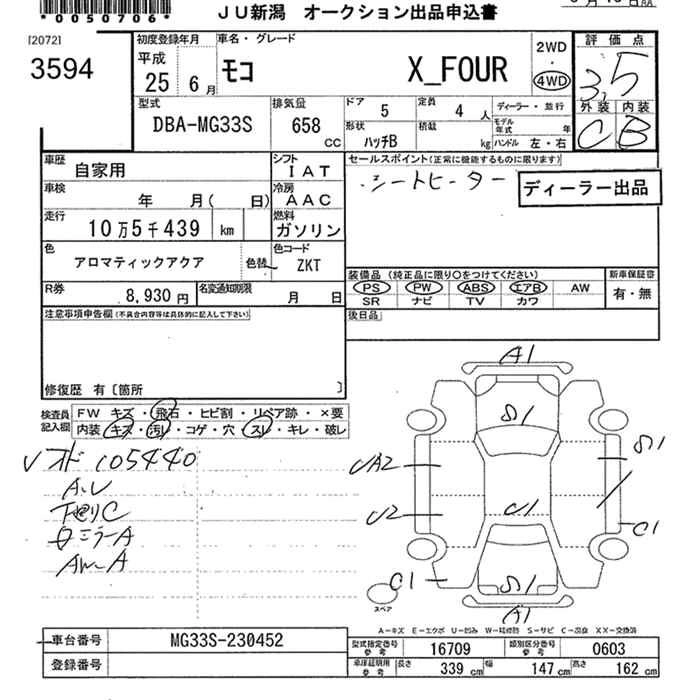 *0050706*
JU新潟 オークション出品申込書
[2072]
3594
初度登録年月 平成 25 6月
車名・グレード モコ X_FOUR
2WD ・ 4WD
評価点 3.5
外装 内装
C B
型式 DBA-MG33S
排気量 658 CC
ドア 5 定員 4人
形状 ハッチB 積載 kg
ディーラー・並行
モデル年式 年
ハンドル 左・右
車歴 自家用
シフト IAT
車検 年 月( 日)
冷房 AAC
走行 10万5千439 km
燃料 ガソリン
色 アロマティックアクア 色替
色コード ZKT
R券 8,930円 名変通知期限 月 日
セールスポイント(正常に機能するものに限ります)
・シートヒーター
ディーラー出品
装備品(純正品に限り○をつけてください)
新車保証書
PS PW ABS エアB AW
SR ナビ TV カワ
有・無
後日品
注意事項申告欄(不具合内容等は具体的に記入して下さい)
修復歴 有〔箇所 〕
検査員記入欄
FW キズ・飛石・ヒビ割・リペア跡・×要
内装・キズ・汚レ・コゲ・穴・スレ・キレ・破レ
105440
A1
S1
UA2
S1
U2
U1
C1
C1
S1
A1
スペア
A－キズ E－エクボ U－凹み W－補修跡 S－サビ C－腐食 XX－交換済
車台番号 MG33S-230452
登録番号
型式指定番号 参考 16709
類別区分番号 参考 0603
車庫証明用 参考 長さ 339 cm 幅 147 cm 高さ 162 cm